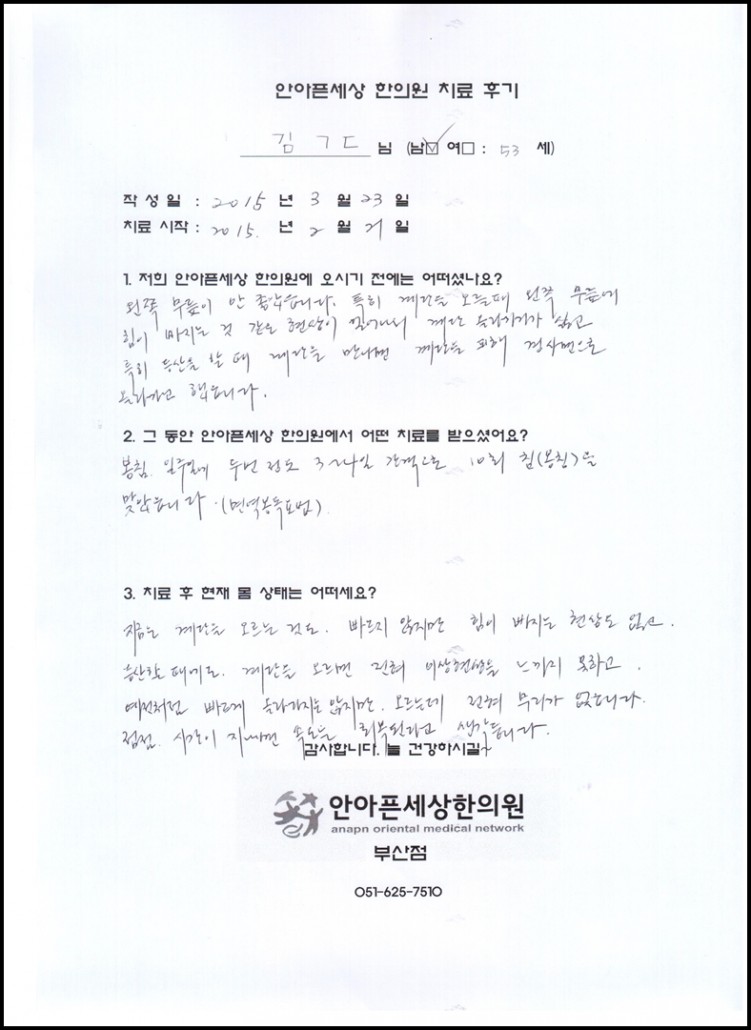 안아픈세상 한의원 치료 후기
김 ㄱㄷ 님 (남☑ 여□ : 53 세)
작성일 : 2015 년 3 월 23 일
치료 시작 : 2015. 년 2 월 21 일
1. 저희 안아픈세상 한의원에 오시기 전에는 어떠셨나요?
왼쪽 무릎이 안 좋았습니다. 특히 계단을 오를때 왼쪽 무릎에
힘이 빠지는 것 같은 현상이 일어나서 계단 올라가기가 싫고
특히 등산을 할 때 계단을 만나면 계단을 피해 경사면으로
올라가고 했습니다.
2. 그 동안 안아픈세상 한의원에서 어떤 치료를 받으셨어요?
봉침. 일주일에 두번 정도 3~4일 간격으로 10회 침(봉침)을
맞았습니다. (면역봉독요법)
3. 치료 후 현재 몸 상태는 어떠세요?
지금은 계단을 오르는 것도. 빠르지 않지만 힘이 빠지는 현상도 없고.
등산할 때에도. 계단을 오르면 전혀 이상현상을 느끼지 못하고.
예전처럼 빠르게 올라가지는 않지만. 오르는데 전혀 무리가 없습니다.
점점. 시간이 지나면 속도는 회복된다고 생각듭니다.
감사합니다. 늘 건강하시길~
안아픈세상한의원
anapn oriental medical network
부산점
051-625-7510